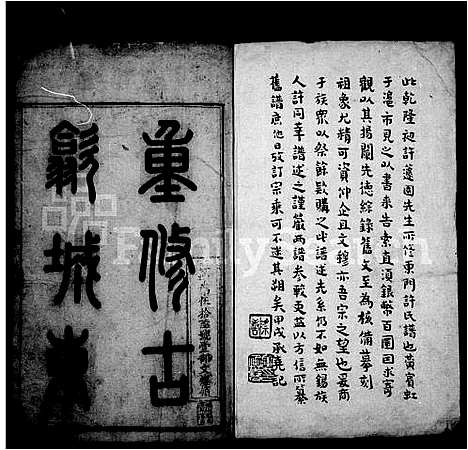 此乾隆間許蘧園先生所修東門許氏譜也黃賓虹
于滬市見之以書來告索直須銀幣百圓因求寄
觀以其揚闡先德綜錄舊文至為核備摹刻
祖象尤精可資仰企且文穆亦吾宗之望也爰商
于族眾以祭餘款購之此譜述先系仍不如無錫族
人許同莘譜述之謹嚴兩譜參較更益以方信所纂
舊譜庶他日攷訂宗乘可不迷其朔矣甲戌承堯記
重修古
歙城東
FamilySearch